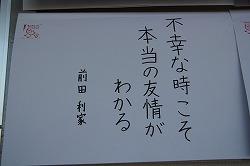 不幸な時こそ
本当の友情が
わかる
前田利家